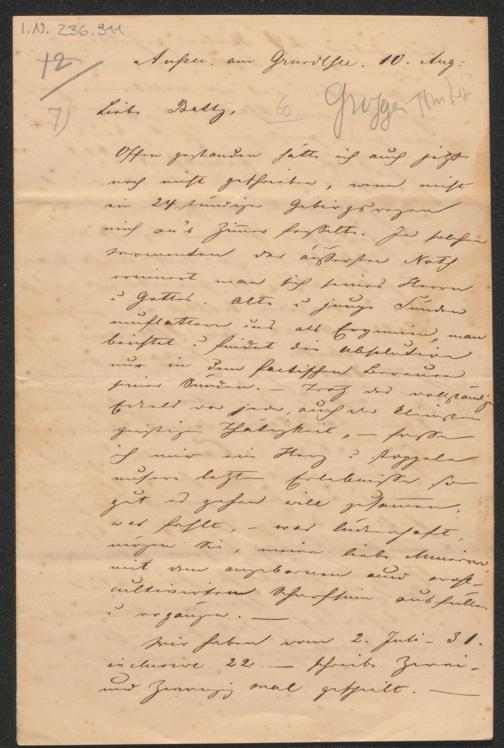 I.N. 236.911
12
Aussee. am Grundlsee. 10. Aug:
7)
60
Liebe Betty,
Offen gestanden hätte ich auch jetzt
noch nicht geschrieben, wenn nicht
ein 24 stündiger Gebirgsregen
mich an's Zimmer fesselte. In solchen
Momenten der äußersten Noth
erinnert man sich seines Herrn
u Gottes. Alte u junge Sünden
umflattern uns als Erynnien, man
beichtet u findet die Absolution
nur in dem factischen Bereuen
seiner Sünden. — Trotz des vollständig
Ekels vor jeder, auch der kleinsten
geistigen Thätigkeit, — fasse
ich mir ein Herz u stopple
unsere letzten Erlebnisse so
gut es gehen will zusammen,
was fehlt, — was lückenhaft,
mögen Sie, meine liebe
mit dem angebornen und
cultivirten Scharfsinn ausfüllen
u ergänzen. —
Wir haben vom 2. Juli - 31.
inclusive 22 — schreibe Zwei-
und Zwanzig mal gespielt. —